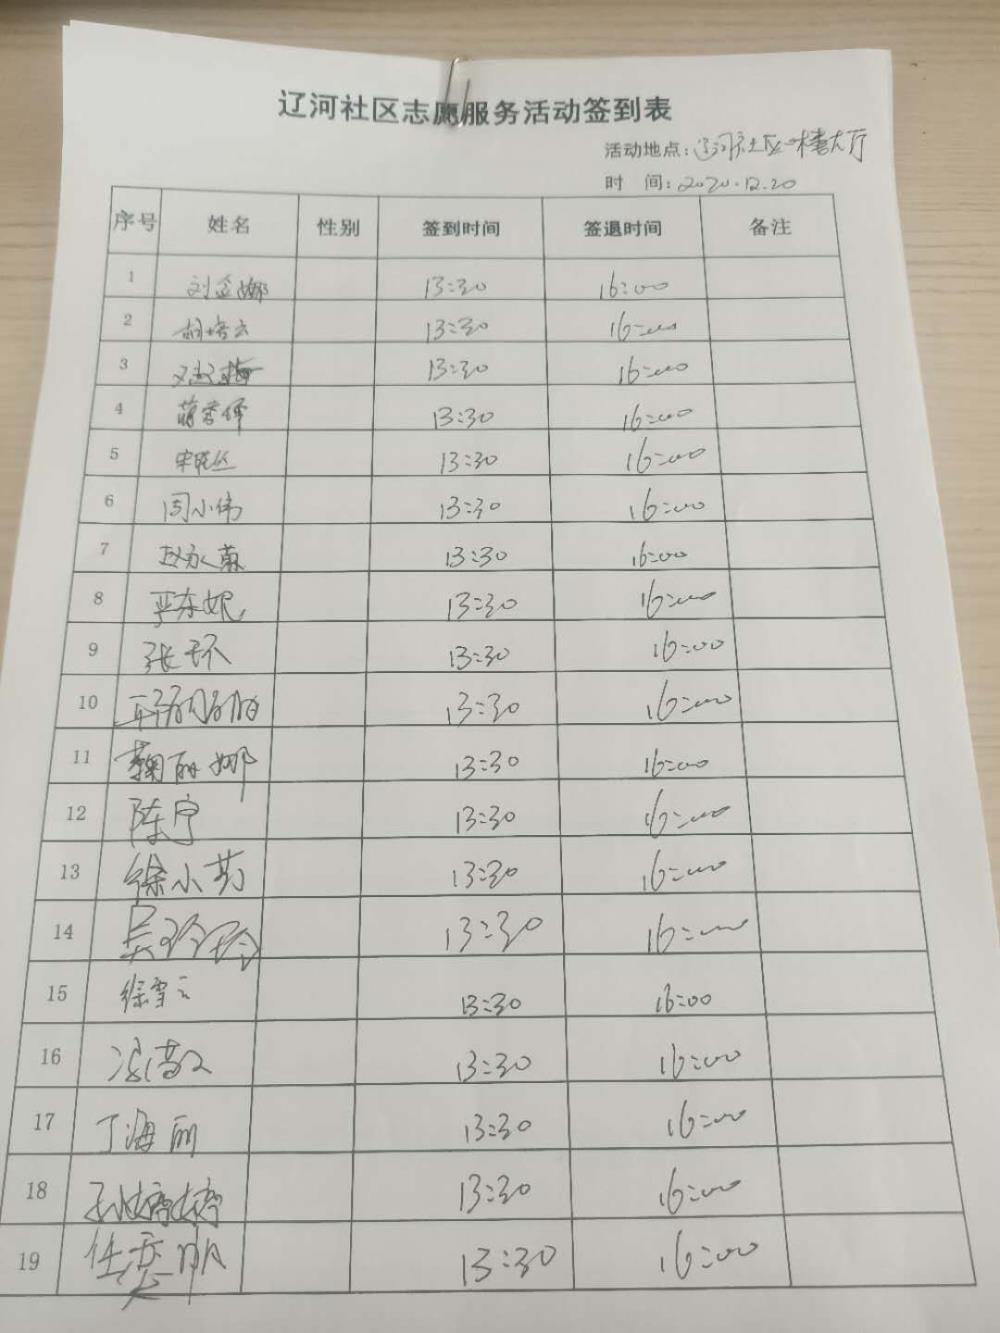 辽河社区志愿服务活动签到表
活动地点:辽河社区一楼大厅
时 间:2020.12.20
序号 姓名 性别 签到时间 签退时间 备注
1 刘金娜 13:30 16:00
2 胡培云 13:30 16:00
3 13:30 16:00
4 13:30 16:00
5 宋晓丝 13:30 16:00
6 周小伟 13:30 16:00
7 赵永菊 13:30 16:00
8 严东妮 13:30 16:00
9 张环 13:30 16:00
10 13:30 16:00
11 鞠丽娜 13:30 16:00
12 陈宇 13:30 16:00
13 徐小勤 13:30 16:00
14 吴玲玲 13:30 16:00
15 徐雪云 13:30 16:00
16 13:30 16:00
17 丁海丽 13:30 16:00
18 孙婷婷 13:30 16:00
19 任恋明 13:30 16:00